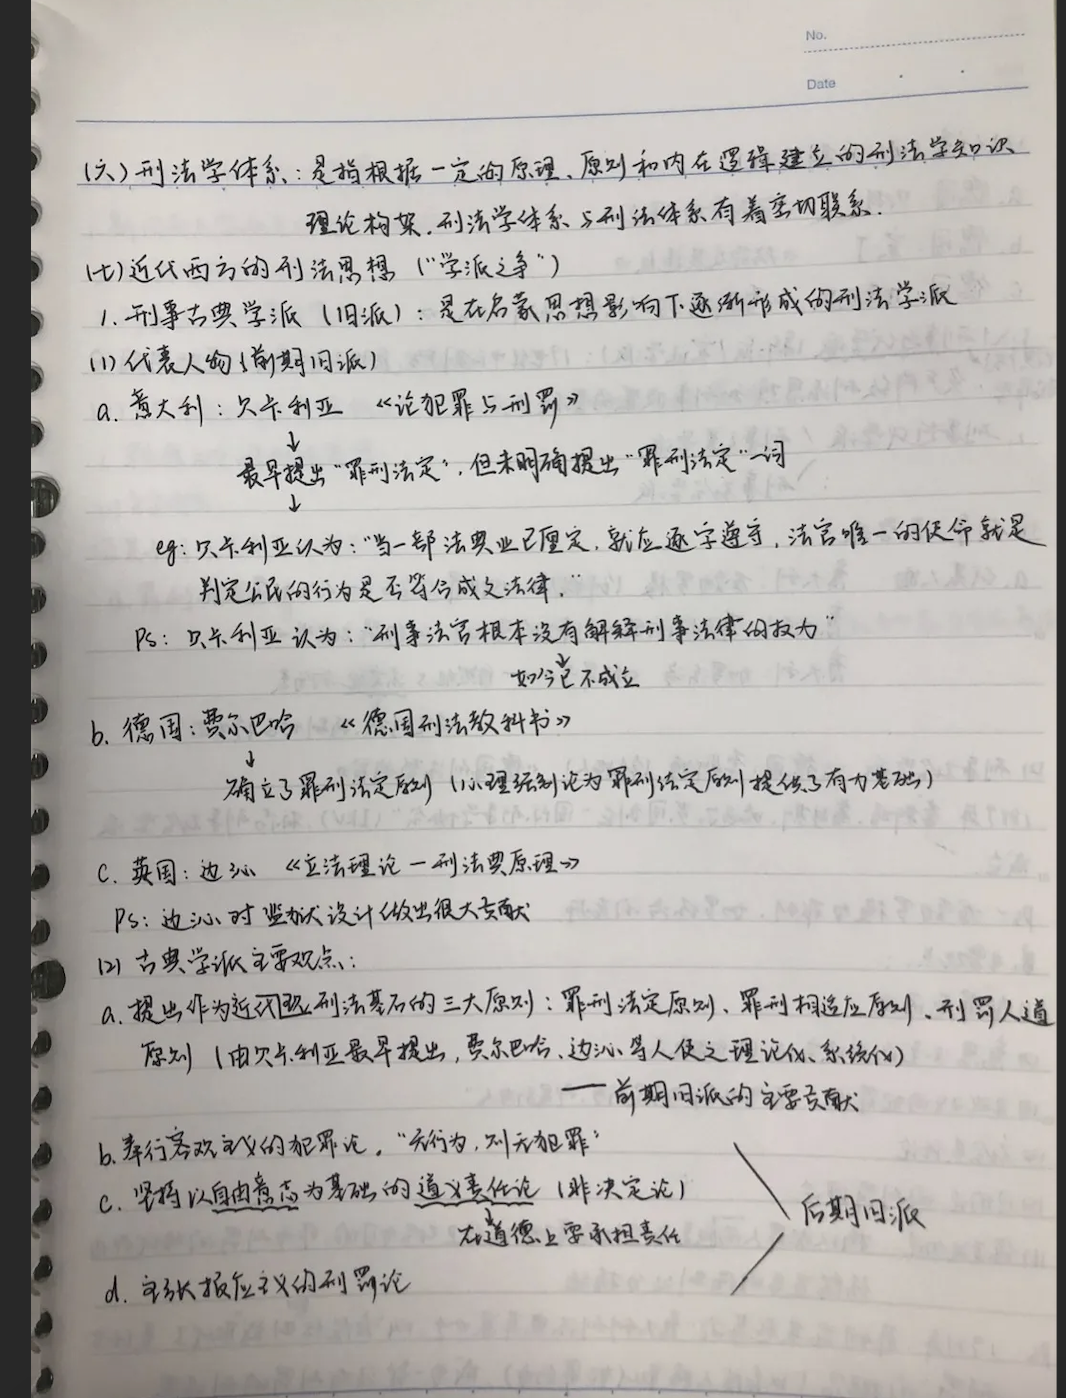 No.
Date
(六) 刑法学体系：是指根据一定的原理、原则和内在逻辑建立的刑法学知识
理论构架，刑法学体系与刑法体系有着密切联系．
(七) 近代西方的刑法思想（“学派之争”）
1. 刑事古典学派（旧派）：是在启蒙思想影响下逐渐形成的刑法学派
(1) 代表人物（前期旧派）
a. 意大利：贝卡利亚 《论犯罪与刑罚》
↓
最早提出“罪刑法定”，但未明确提出“罪刑法定”一词
↓
eg：贝卡利亚认为：“当一部法典业已厘定，就应逐字遵守，法官唯一的使命就是
判定公民的行为是否符合成文法律．”
Ps：贝卡利亚认为：“刑事法官根本没有解释刑事法律的权力”
↓
如今已不成立
b. 德国：费尔巴哈 《德国刑法教科书》
↓
确立了罪刑法定原则（心理强制论为罪刑法定原则提供了有力基础）
C. 英国：边沁 《立法理论—刑法典原理》
Ps：边沁对监狱设计做出很大贡献
(2) 古典学派主要观点：
a. 提出作为近代刑法基石的三大原则：罪刑法定原则、罪刑相适应原则、刑罚人道
原则（由贝卡利亚最早提出，费尔巴哈、边沁等人使之理论化、系统化）
——前期旧派的主要贡献
b. 奉行客观主义的犯罪论。“无行为，则无犯罪”
C. 坚持以自由意志为基础的道义责任论（非决定论）
↓
在道德上要承担责任
后期旧派
d. 主张报应主义的刑罚论